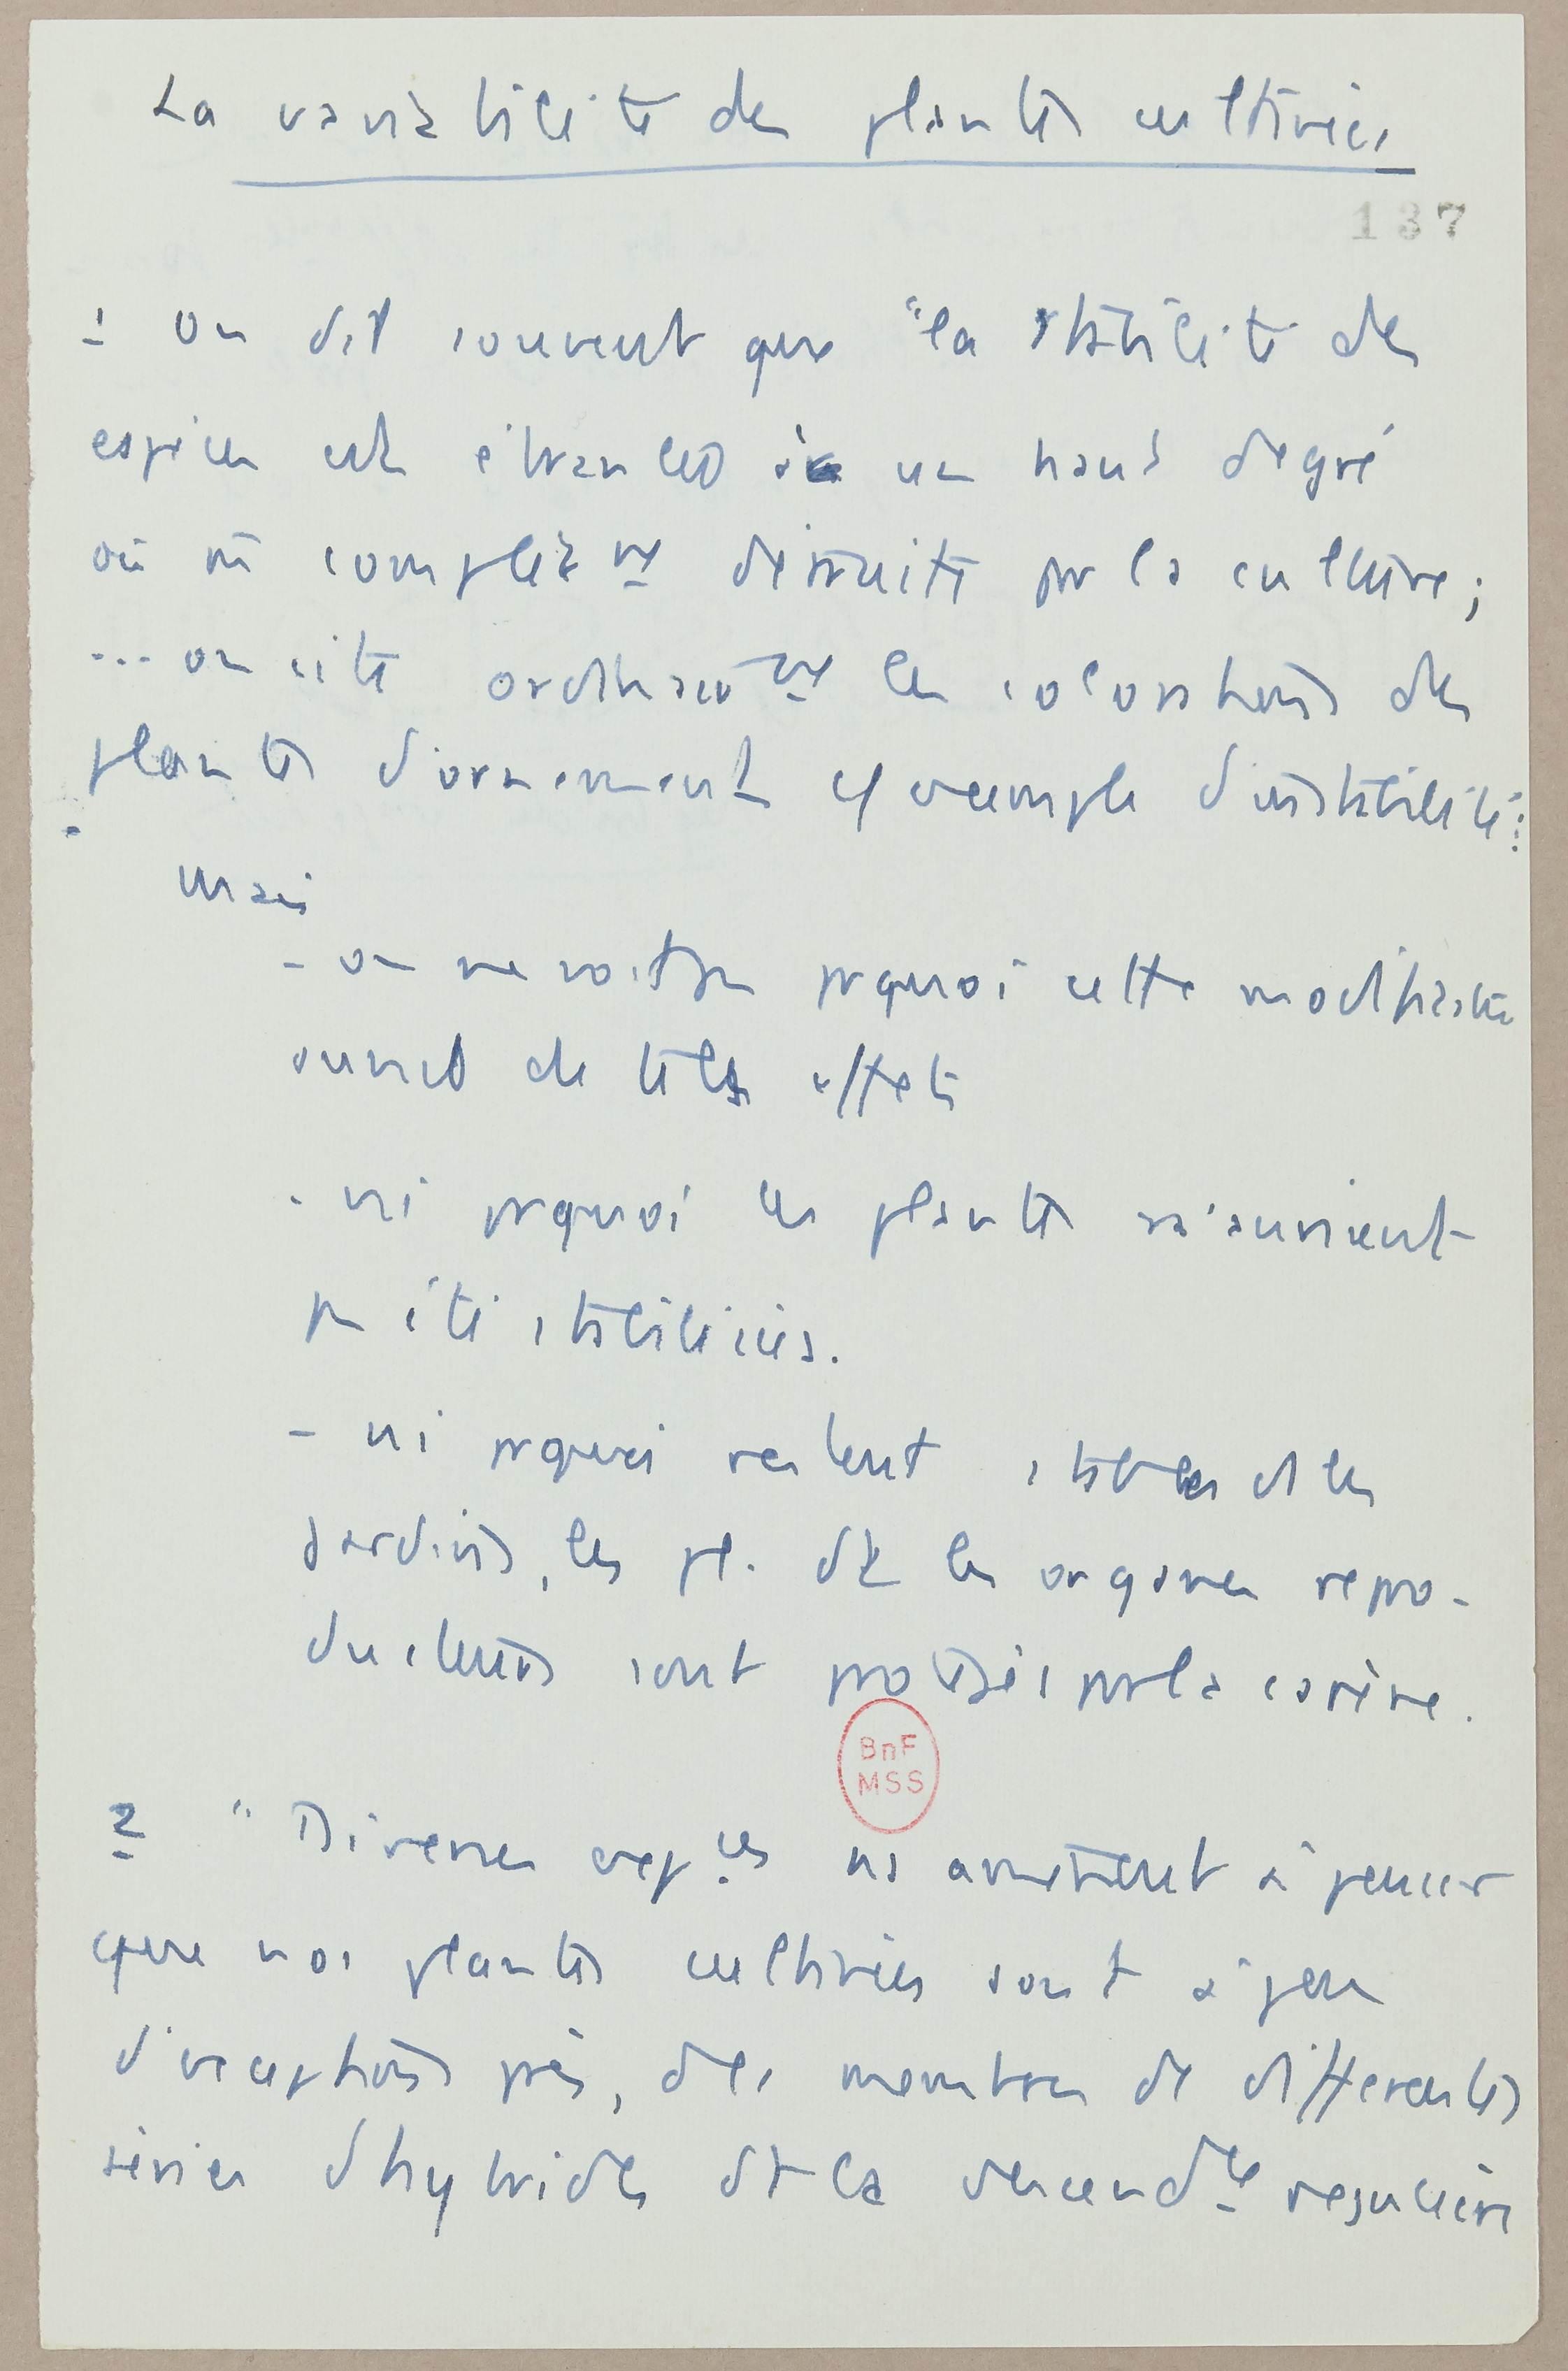 La variabilité des plantes cultivées
137
1 On dit souvent que "la stabilité des
espèces est ébranlée à un haut degré
ou même complèt nt détruite par la culture;
... on cite ordinair nt les colorations des
plantes d'ornement exemple d'instabilité :
Mais
- on ne voit pas prquoi cette modification
aurait de tels effets
- ni prquoi les plantes n'auraient
pas été stabilisées.
- ni prquoi restent stables ds les
jardins, les pl. dt les organes repro-
ducteurs sont protégés par la carène.
BnF
MSS
2 "Diverses exp ces ns amènent à penser
que nos plantes cultivées sont à peu
d'exceptions près, des membres de différentes
séries d'hybrides dt la descend ce régulière